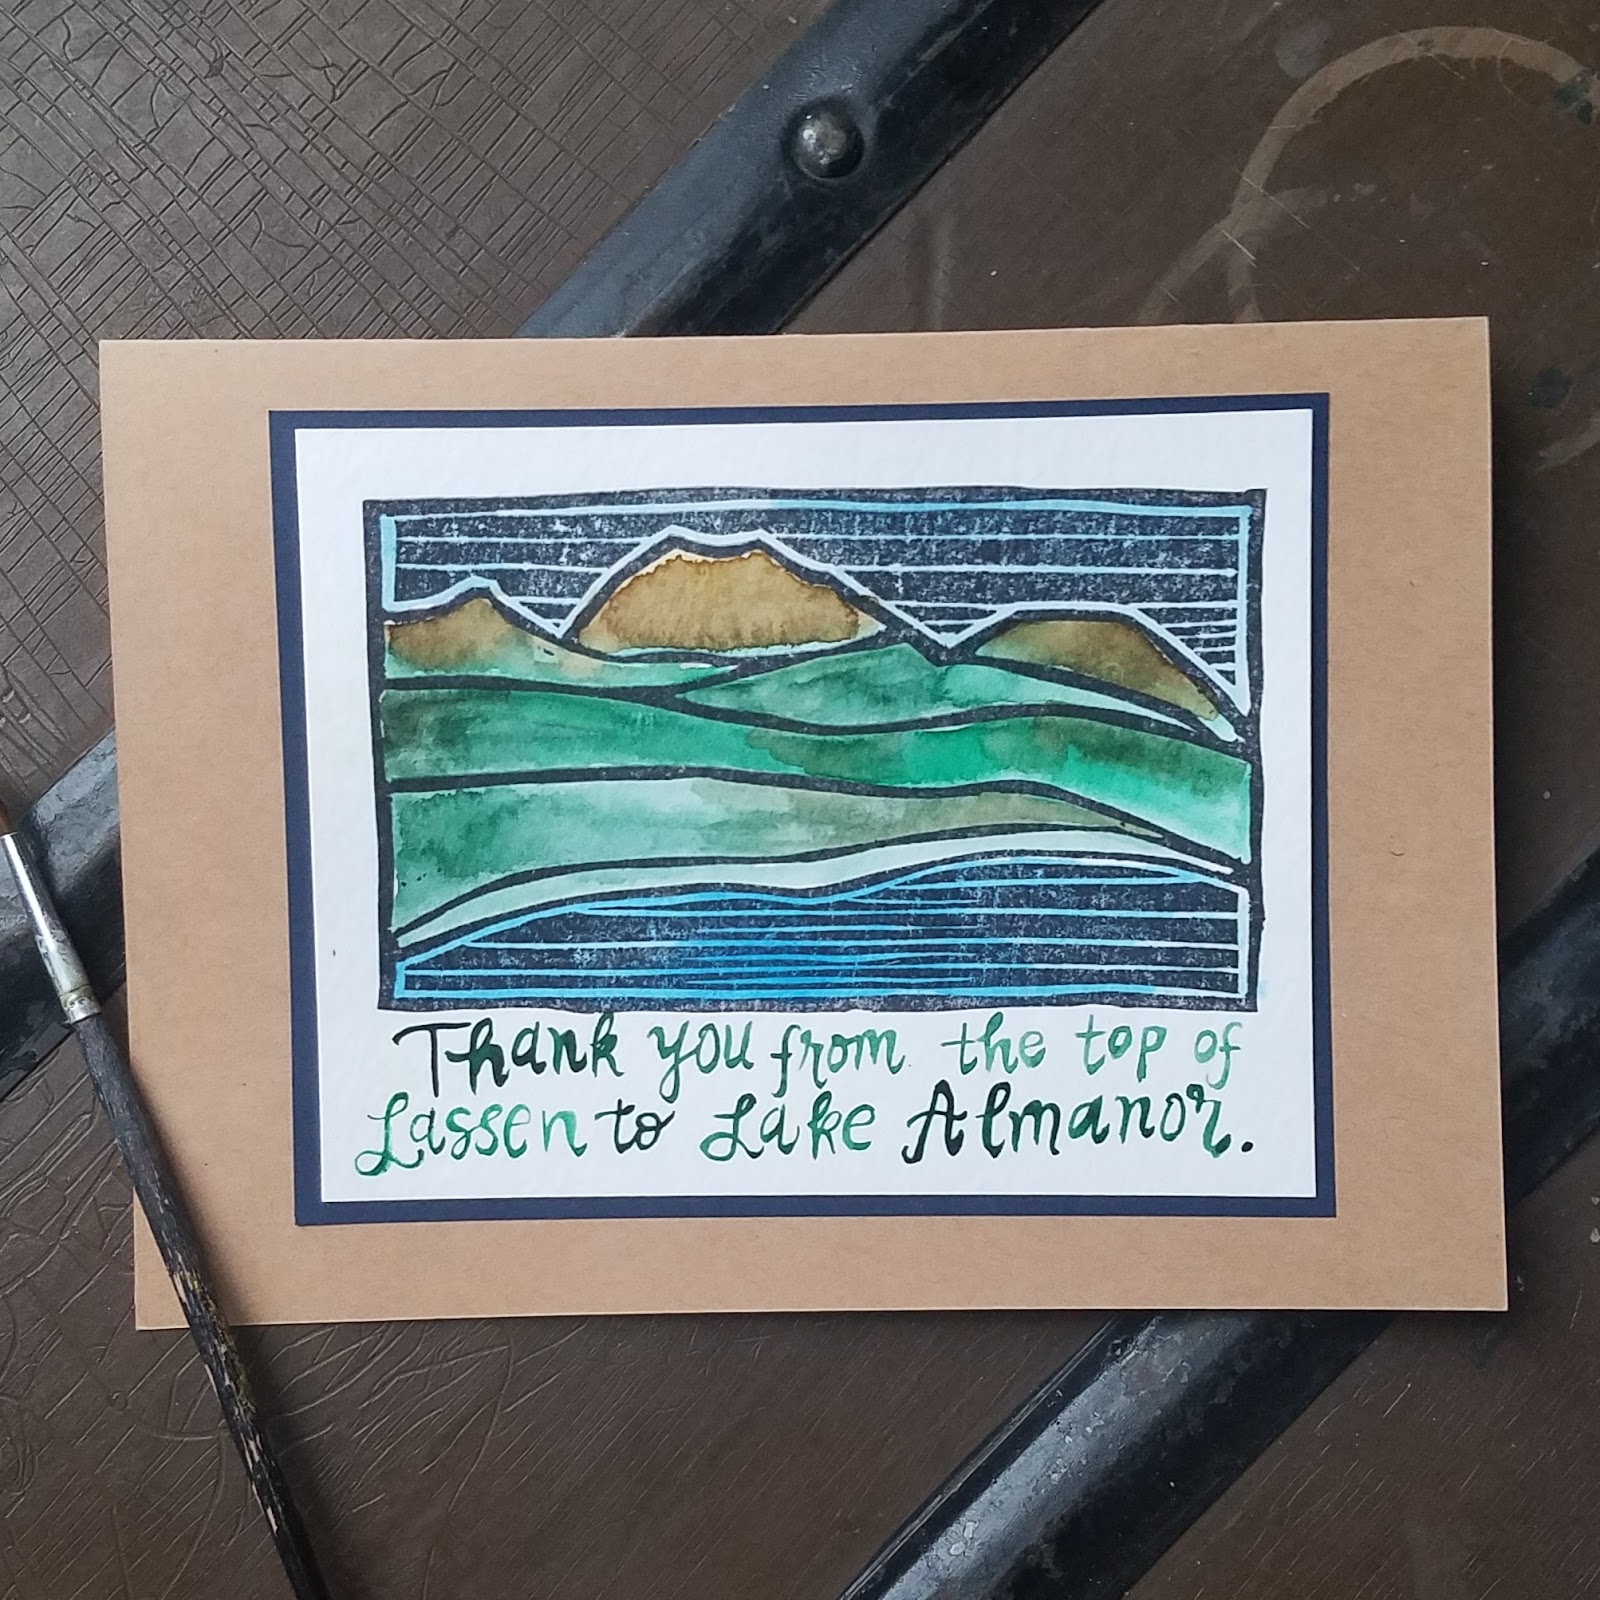 Thank you from the top of
Lassen to Lake Almanor.